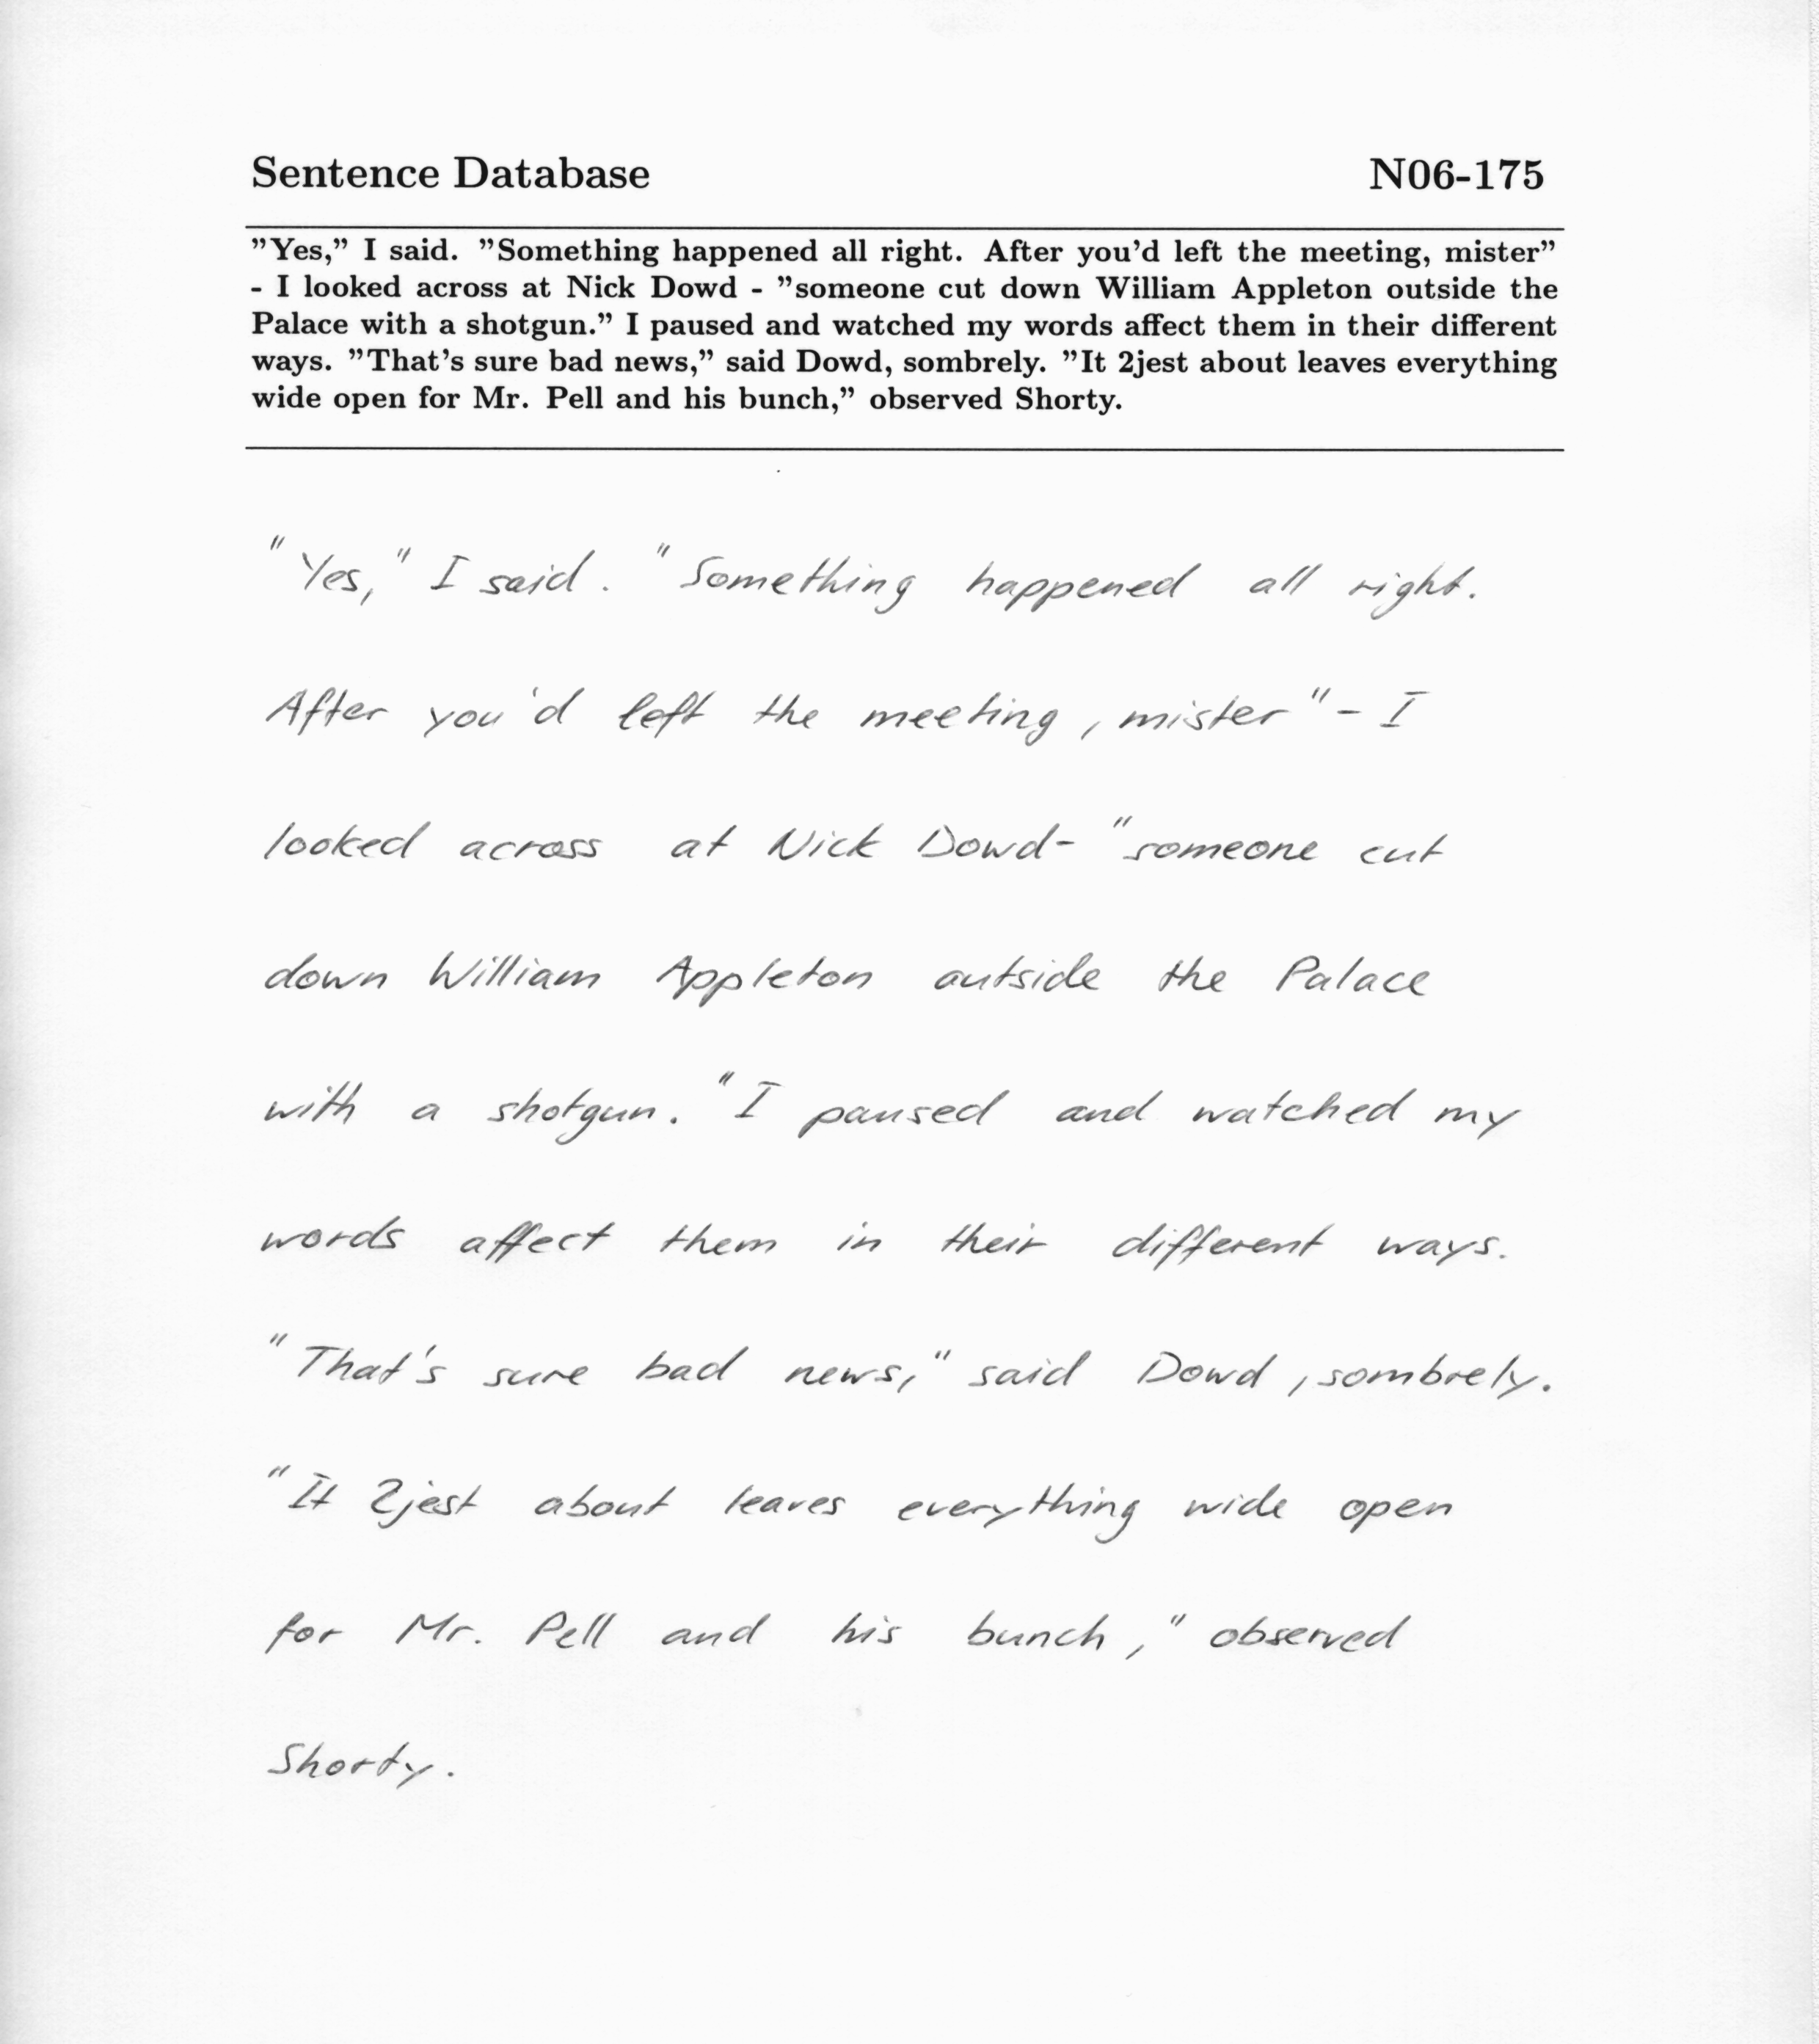 Sentence Database N06-175
”Yes,” I said. ”Something happened all right. After you’d left the meeting, mister”
- I looked across at Nick Dowd - ”someone cut down William Appleton outside the
Palace with a shotgun.” I paused and watched my words affect them in their different
ways. ”That’s sure bad news,” said Dowd, sombrely. ”It 2jest about leaves everything
wide open for Mr. Pell and his bunch,” observed Shorty.
"Yes," I said. "Something happened all right.
After you'd left the meeting, mister" - I
looked across at Nick Dowd- "someone cut
down William Appleton outside the Palace
with a shotgun. "I paused and watched my
words affect them in their different ways.
"That's sure bad news," said Dowd, sombrely.
"It 2jest about leaves everything wide open
for Mr. Pell and his bunch," observed
Shorty.